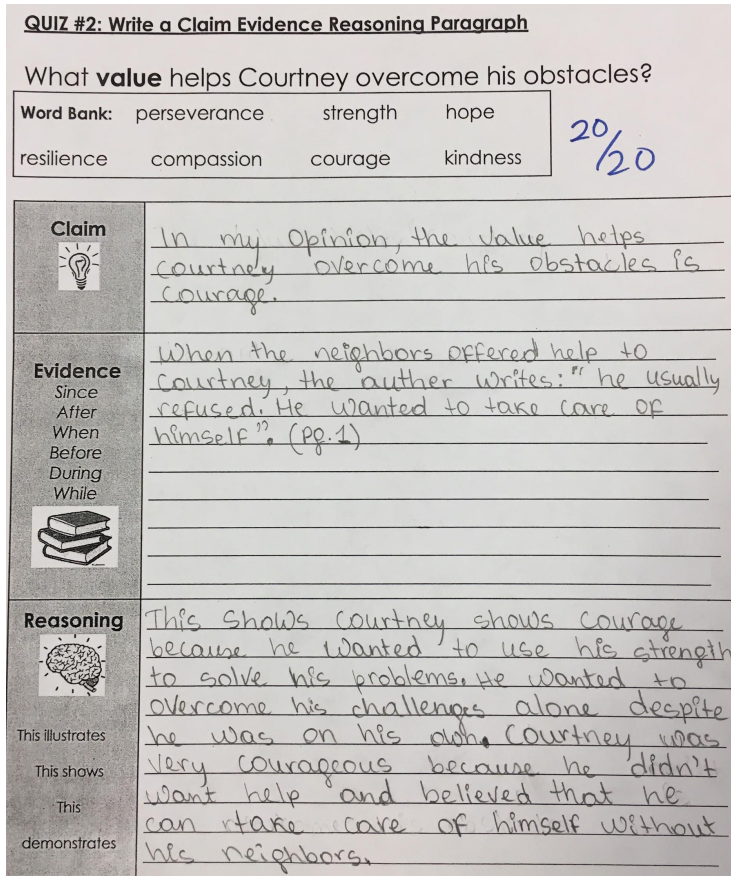 QUIZ #2: Write a Claim Evidence Reasoning Paragraph
What value helps Courtney overcome his obstacles?
Word Bank: perseverance strength hope
resilience compassion courage kindness
20/20
Claim
In my opinion, the value helps
courtney overcome his obstacles is
courage.
Evidence
Since
After
When
Before
During
While
When the neighbors offered help to
courtney, the auther writes: " he usually
refused. He wanted to take care of
himself". (pg.1)
Reasoning
This illustrates
This shows
This
demonstrates
This shows courtney shows courage
because he wanted to use his strength
to solve his problems. He wanted to
overcome his challenges alone despite
he was on his own. Courtney was
very courageous because he didn't
want help and believed that he
can take care of himself without
his neighbors.